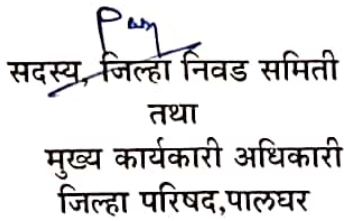 सदस्य, जिल्हा निवड समिती
तथा
मुख्य कार्यकारी अधिकारी
जिल्हा परिषद,पालघर